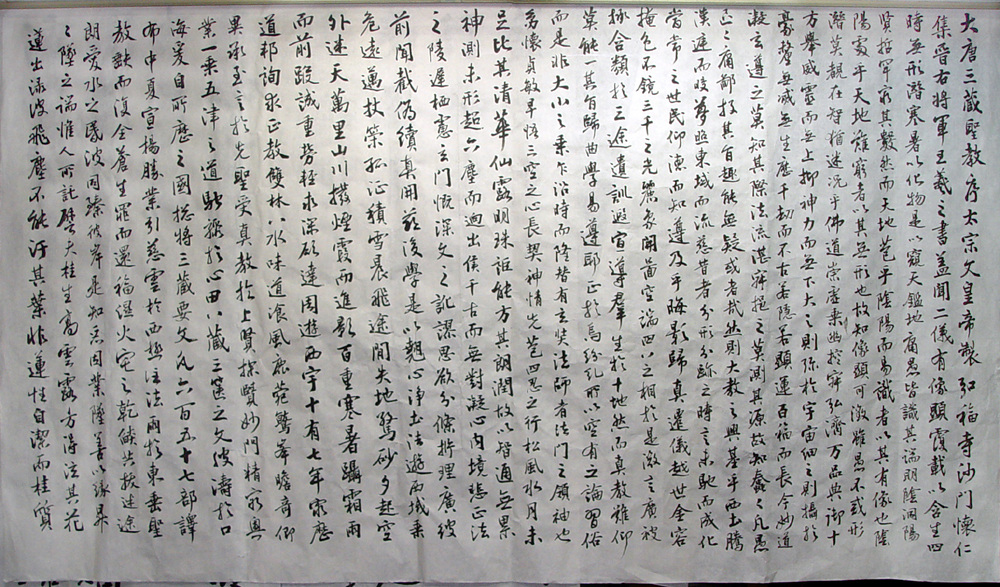 大唐三藏聖教序太宗文皇帝製弘福寺沙門懷仁
集晉右將軍王羲之書蓋聞二儀有像顯覆載以含生四
時無形潛寒暑以化物是以窺天鑑地庸愚皆識其端明陰洞陽
賢哲罕窮其數然而天地苞乎陰陽而易識者以其有像也陰
陽處乎天地難窮者以其無形也故知像顯可徵雖愚不惑形
潛莫覩在智猶迷況乎佛道崇虛乘幽控寂弘濟萬品典御十
方舉威靈而無上抑神力而無下大之則彌於宇宙細之則攝於
豪釐無滅無生歷千劫而不古若隱若顯運百福而長今妙道
凝玄遵之莫知其際法流湛寂挹之莫測其源故知蠢蠢凡愚
區區庸鄙投其旨趣能無疑或者哉然則大教之興基乎西土騰
漢庭而皎夢照東域而流慈昔者分形分跡之時言未馳而成化
當常之世民仰德而知遵及乎晦影歸真遷儀越世金容
掩色不鏡三千之光麗象開圖空端四八之相於是微言廣被
拯含類於三途遺訓遐宣導羣生於十地然而真教難仰
莫能一其旨歸曲學易遵耶正於焉紛糺所以空有之論習俗
而是非大小之乘乍沿時而隆替有玄奘法師者法門之領袖也
幼懷貞敏早悟三空之心長契神情先苞四忍之行松風水月未
足比其清華仙露明珠詎能方其朗潤故以智通無累
神測未形超六塵而迥出隻千古而無對凝心內境悲正法
之陵遲栖慮玄門慨深文之訛謬思欲分條析理廣彼
前聞截偽續真開茲後學是以翹心淨土法遊西域乘
危遠邁杖策孤征積雪晨飛途閒失地驚砂夕起空
外迷天萬里山川撥煙霞而進影百重寒暑躡霜雨
而前蹤誠重勞輕求深願達周遊西宇十有七年窮歷
道邦詢求正教雙林八水味道飡風鹿苑鷲峯瞻奇仰
異承至言於先聖受真教於上賢探賾妙門精窮奧
業一乘五津之道馳驟於心田八藏三篋之文波濤於口
海爰自所歷之國總將三藏要文凡六百五十七部譯
布中夏宣揚勝業引慈雲於西極注法雨於東垂聖
教缺而復全蒼生罪而還福濕火宅之乾燄共拔迷途
朗愛水之昏波同臻彼岸是知惡因業墜善以緣昇
之墜之端惟人所託譬夫桂生高雲露方得泫其花
蓮出淥波飛塵不能汙其葉非蓮性自潔而桂質